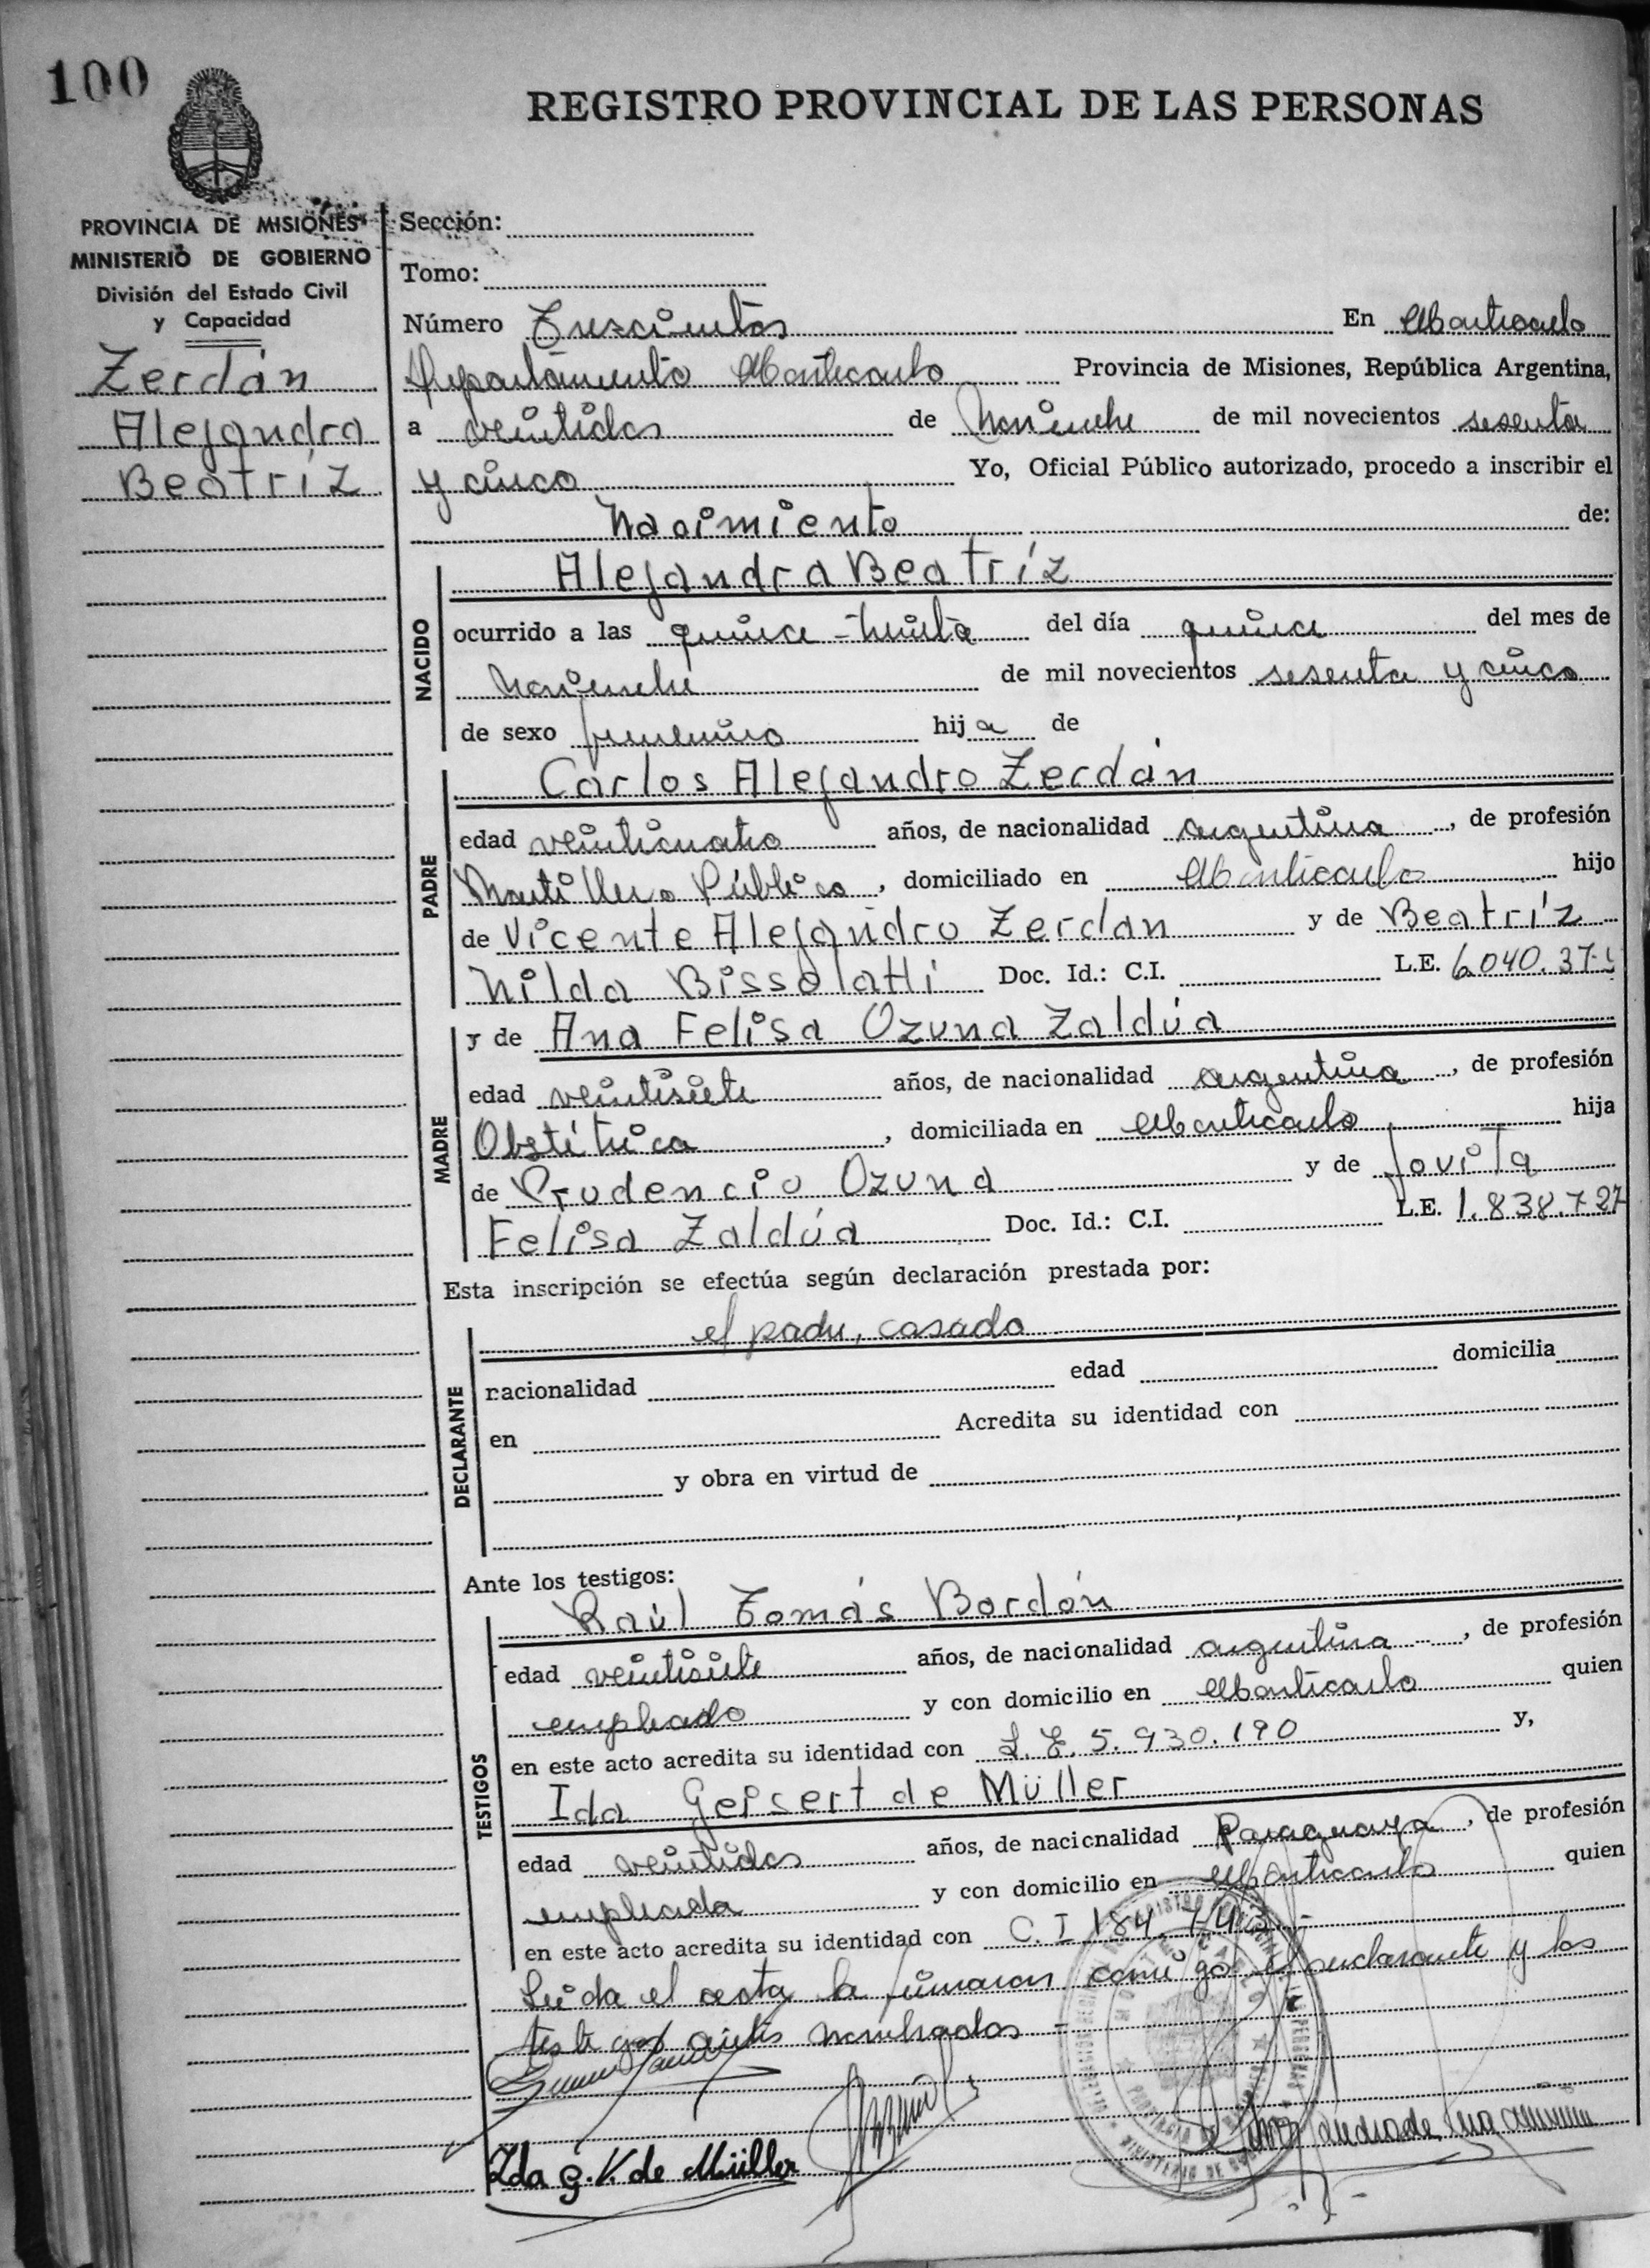 100
REGISTRO PROVINCIAL DE LAS PERSONAS
PROVINCIA DE MISIONES
MINISTERIO DE GOBIERNO
División del Estado Civil
y Capacidad
Zerdán
Alejandra
Beatríz
Sección:
Tomo:
Número Trescientos En Montecarlo
Departamento Montecarlo Provincia de Misiones, República Argentina,
a veintidos de Noviembre de mil novecientos sesenta
y cinco Yo, Oficial Público autorizado, procedo a inscribir el
Nacimiento de:
NACIDO
Alejandra Beatríz
ocurrido a las quince-treinta del día quince del mes de
Noviembre de mil novecientos sesenta y cinco
de sexo femenino hija de
PADRE
Carlos Alejandro Zerdán
edad veinticuatro años, de nacionalidad argentina, de profesión
Martillero Público, domiciliado en Montecarlo hijo
de Vicente Alejandro Zerdan y de Beatríz
Nilda Bissolatti Doc. Id.: C.I. L.E. 6.040.37
MADRE
y de Ana Felisa Ozuna Zaldúa
edad veintisiete años, de nacionalidad argentina, de profesión
Obstétrica, domiciliada en Montecarlo hija
de Prudencio Ozuna y de Jovita
Felisa Zaldúa Doc. Id.: C.I. L.E. 1.838.727
Esta inscripción se efectúa según declaración prestada por:
DECLARANTE
el padre, casado
nacionalidad edad domicilia
en Acredita su identidad con
y obra en virtud de
Ante los testigos:
TESTIGOS
Raúl Tomás Bordón
edad veintisiete años, de nacionalidad argentina, de profesión
empleado y con domicilio en Montecarlo quien
en este acto acredita su identidad con L.E. 5.930.190 y,
Ida Geisert de Müller
edad veintidos años, de nacionalidad Paraguaya, de profesión
empleada y con domicilio en Montecarlo quien
en este acto acredita su identidad con C.I 184.
Leida el acta la firmaron conmigo el declarante y los
testigos antes nombrados -
Ida G. V. de Müller